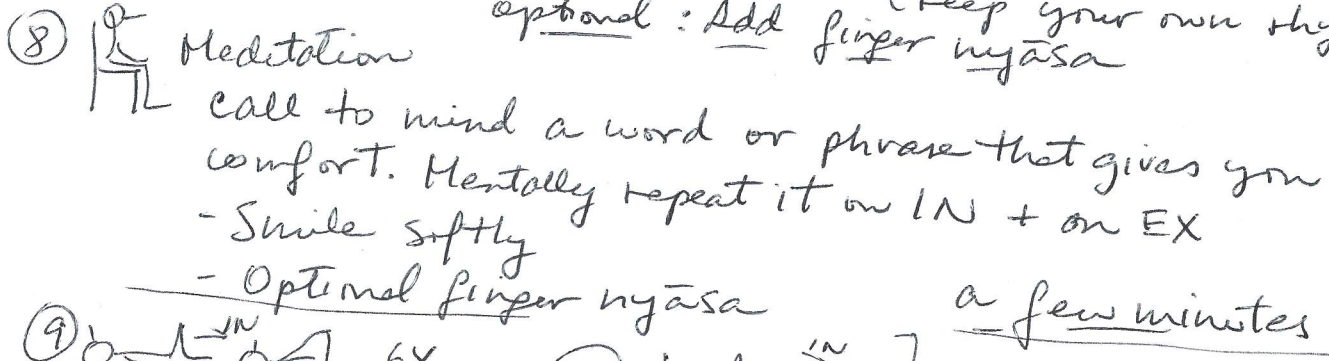 (keep your own
optional : Add finger nyāsa
⑧ Meditation
Call to mind a word or phrase that gives you
comfort. Mentally repeat it on IN + on EX
- Smile softly
- Optional finger nyāsa
a few minutes
⑨ IN EX IN